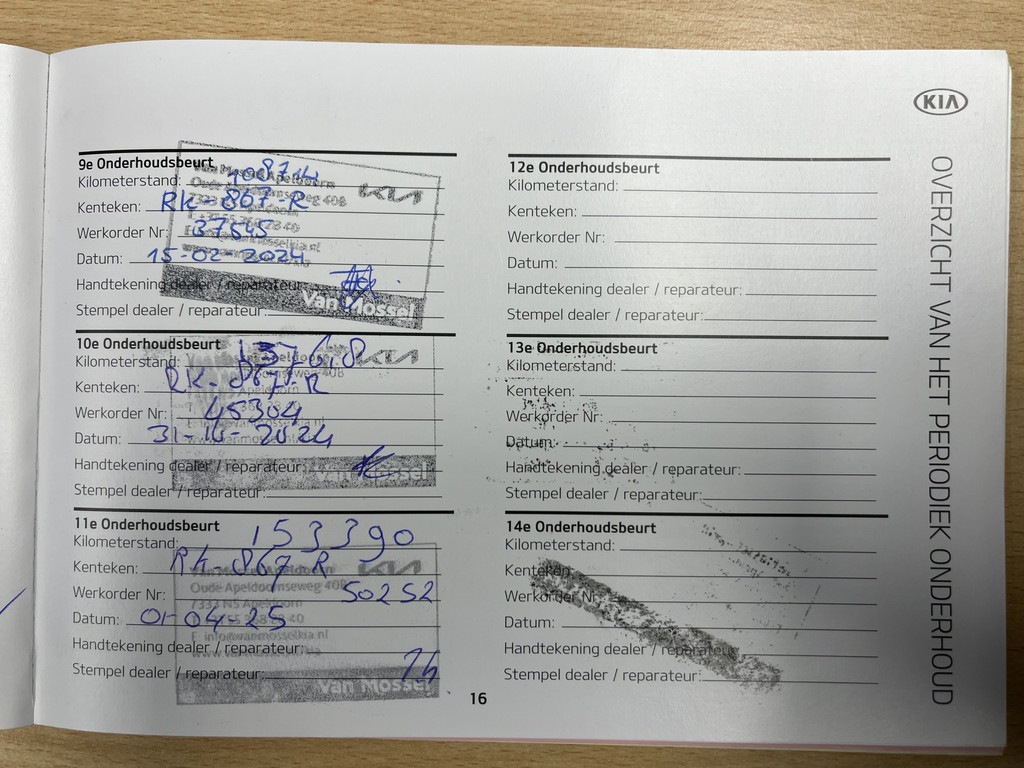 KIA
OVERZICHT VAN HET PERIODIEK ONDERHOUD
9e Onderhoudsbeurt
Kilometerstand:
Kenteken: RK-867-R
Werkorder Nr: 37545
Datum: 15-02-2024
Handtekening dealer / reparateur:
Stempel dealer / reparateur:
KIA
Van Mossel
10e Onderhoudsbeurt
Kilometerstand:
Kenteken: RK-867-R
Werkorder Nr: 45304
Datum: 31-10-2024
Handtekening dealer / reparateur:
Stempel dealer / reparateur:
KIA
Van Mossel
11e Onderhoudsbeurt
Kilometerstand: 153390
Kenteken: RK-867-R
Werkorder Nr: 50252
Datum: 01-04-25
Handtekening dealer / reparateur:
Stempel dealer / reparateur:
KIA
Van Mossel Apeldoorn
Oude Apeldoornseweg 40B
7333 NS Apeldoorn
E info@vanmosselkia.nl
Van Mossel
12e Onderhoudsbeurt
Kilometerstand:
Kenteken:
Werkorder Nr:
Datum:
Handtekening dealer / reparateur:
Stempel dealer / reparateur:
13e Onderhoudsbeurt
Kilometerstand:
Kenteken:
Werkorder Nr:
Datum:
Handtekening dealer / reparateur:
Stempel dealer / reparateur:
14e Onderhoudsbeurt
Kilometerstand:
Kenteken:
Werkorder Nr:
Datum:
Handtekening dealer / reparateur:
Stempel dealer / reparateur:
16